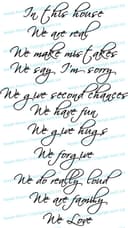 In this house
We are real
We make mistakes
We say I'm sorry
We give second chances
We have fun
We give hugs
We forgive
We do really loud
We are family
We Love